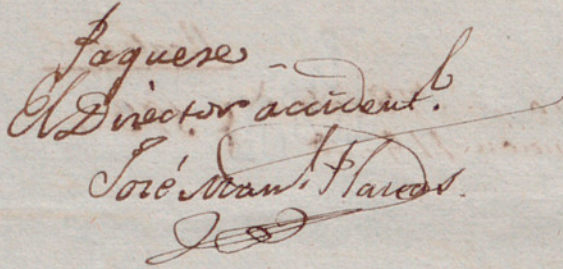 Paguese
El Director accident.l
José Man.l Plareos.